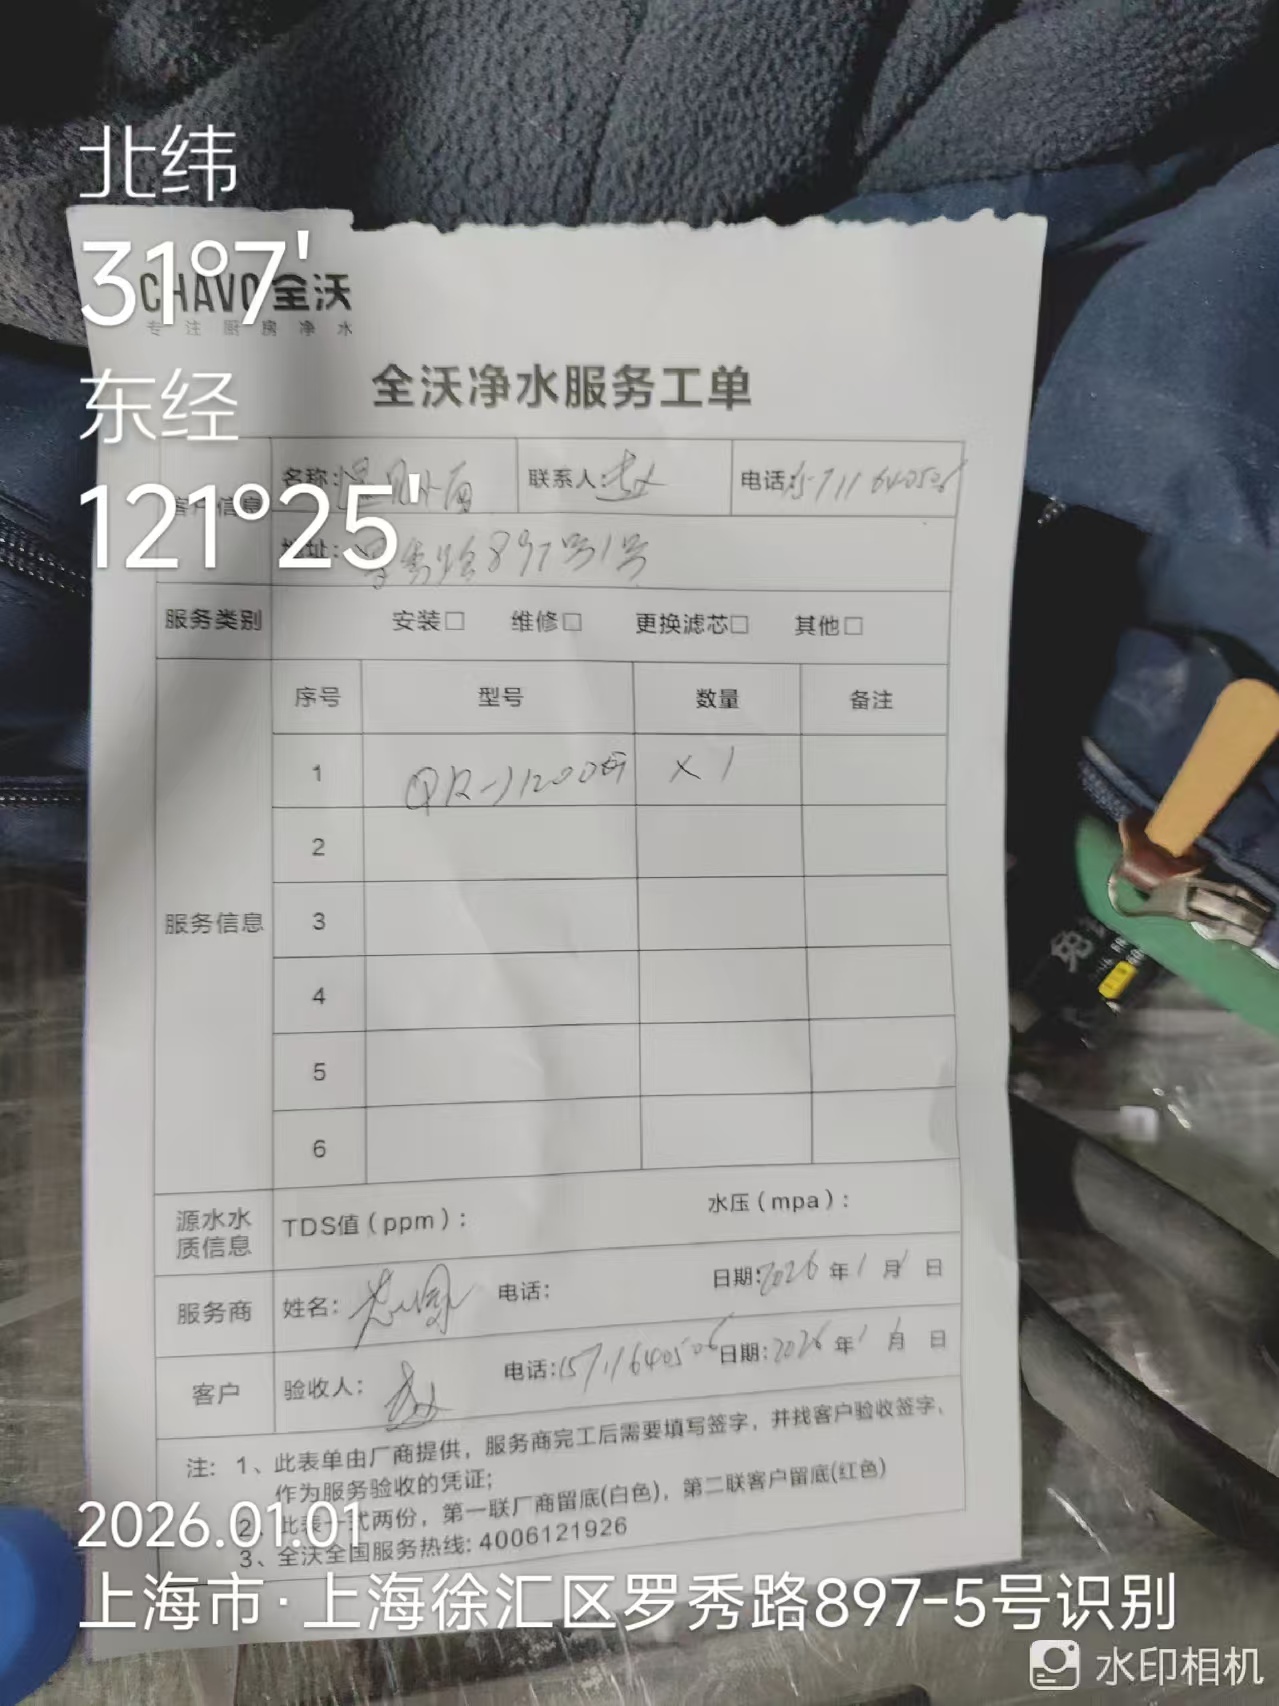 北纬
31°7'
CHAVO 全沃
专注厨房净水
东经
121°25'
全沃净水服务工单
客户信息
名称: 联系人:赵 电话:15711640506
地址: 秀路897号1号
服务类别 安装□ 维修□ 更换滤芯□ 其他□
服务信息
序号 型号 数量 备注
1 QR-J1200 X1
2
3
4
5
6
源水水质信息 TDS值(ppm): 水压(mpa):
服务商 姓名: 电话: 日期:2026年1月1日
客户 验收人:赵 电话:15711640506 日期:2026年1月1日
注: 1、此表单由厂商提供,服务商完工后需要填写签字,并找客户验收签字,
作为服务验收的凭证;
2、此表一式两份,第一联厂商留底(白色),第二联客户留底(红色)
3、全沃全国服务热线: 4006121926
2026.01.01
上海市·上海徐汇区罗秀路897-5号识别
水印相机
免